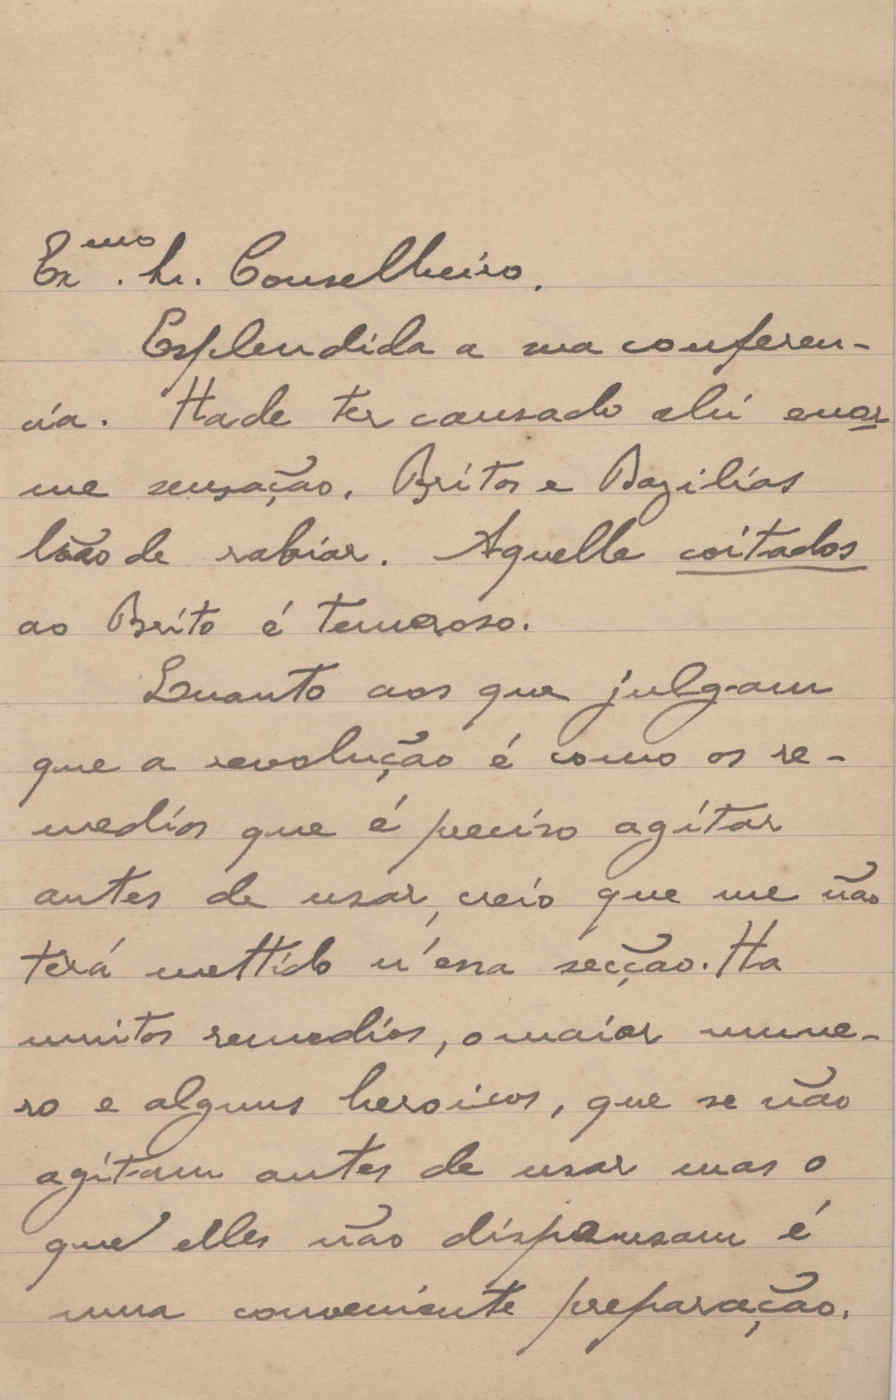 Ex.mo Sr. Conselheiro.
Esplendida a sua conferen-
cia. Hade ter causado ahi enor
me sensação. Britos e Bazilias
hão de rabiar. Aquelle coitados
ao Brito é temeroso.
Quanto aos que julgam
que a revolução é como os re-
medios que é preciso agitar
antes de usar, creio que me não
terá mettido n'essa secção. Ha
muitos remedios, o maior nume-
ro e alguns heroicos, que se não
agitam antes de usar mas o
que elles não dispensam é
uma conveniente preparação.